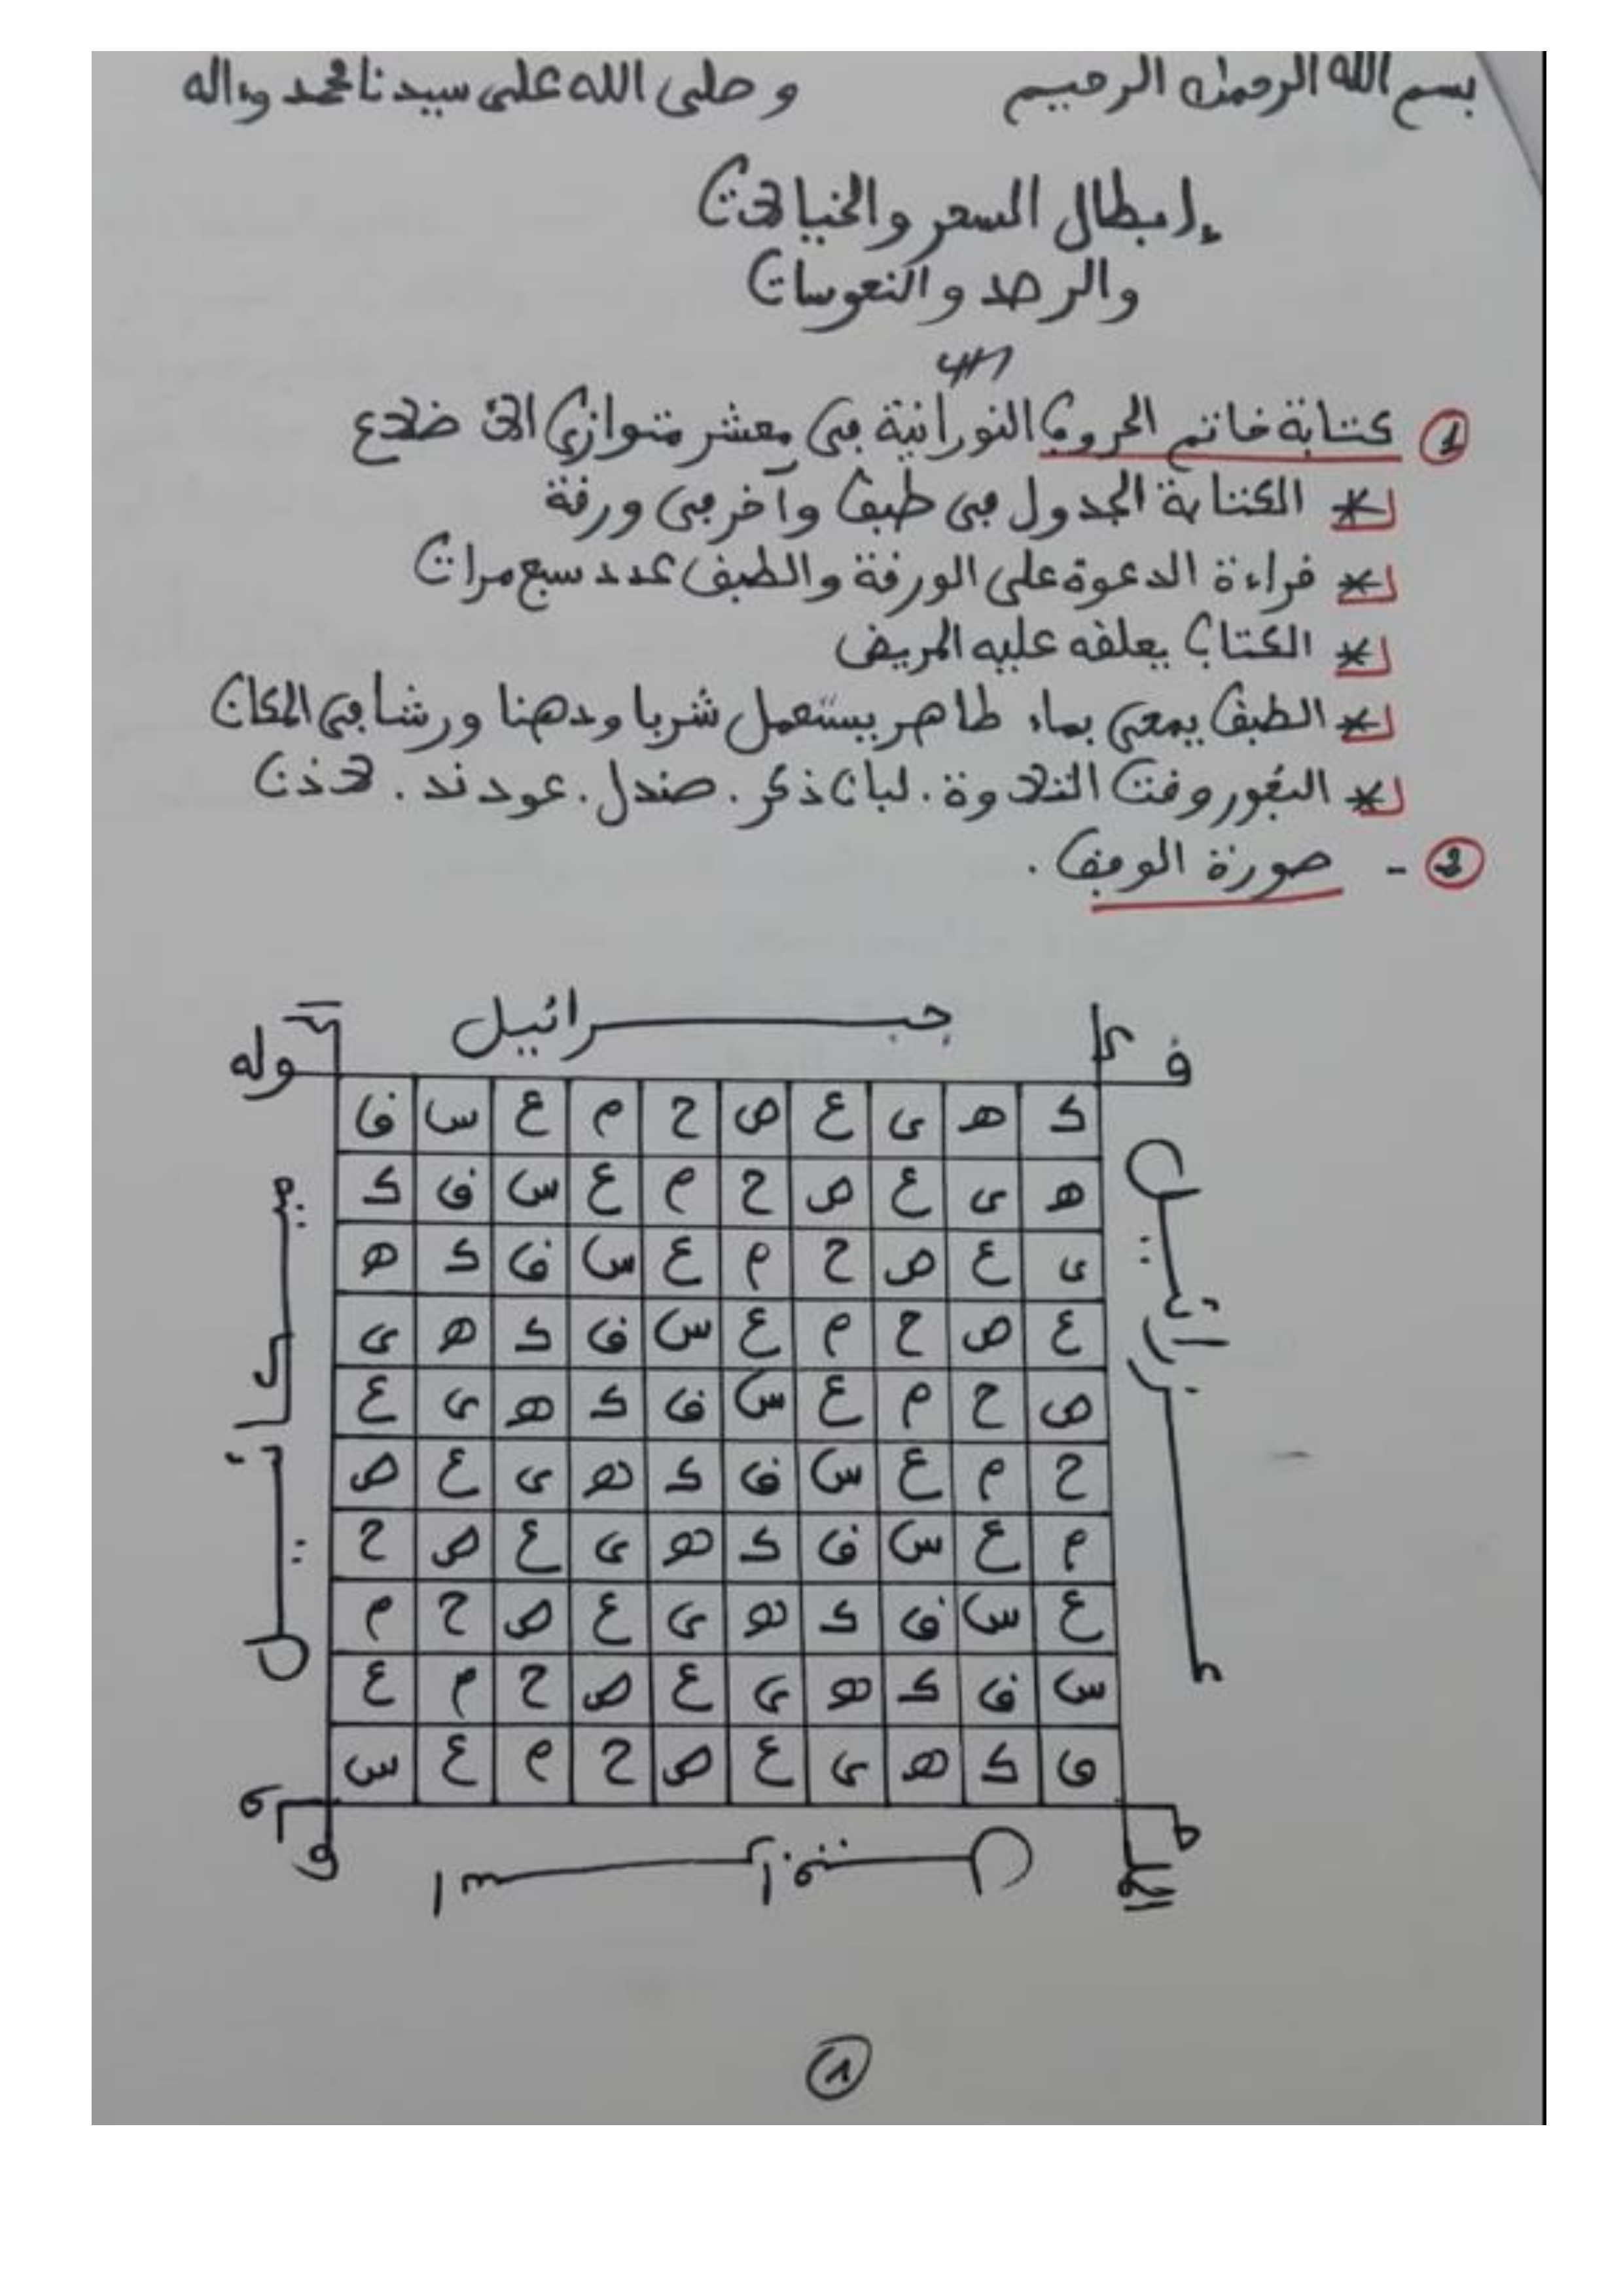 بسم الله الرحمن الرحيم وصلى الله على سيدنا محمد وءاله
إبطال السحر والخيالات
والرصد والنحوسات
① كتابة خاتم الحروف النورانية في معشر متوازي الاضلاع
* الكتابة الجدول في طبق وآخر في ورقة
* قراءة الدعوة على الورقة والطبق عدد سبع مرات
* الكتاب يعلقه عليه المريض
* الطبق يمحى بماء طاهر يستعمل شربا ودهنا ورشا في المكان
* البخور وقت التلاوة . لبان ذكر . صندل . عود ند . لاذن
② - صورة الوفق .
جبرائيل
قوله
ك ه ي ع ص ح م ع س ق
ه ي ع ص ح م ع س ق ك
ي ع ص ح م ع س ق ك ه
ع ص ح م ع س ق ك ه ي
ص ح م ع س ق ك ه ي ع
ح م ع س ق ك ه ي ع ص
م ع س ق ك ه ي ع ص ح
ع س ق ك ه ي ع ص ح م
س ق ك ه ي ع ص ح م ع
ق ك ه ي ع ص ح م ع س
عزرائيل
ميكائيل
اسرافيل
الحق
الملك
①